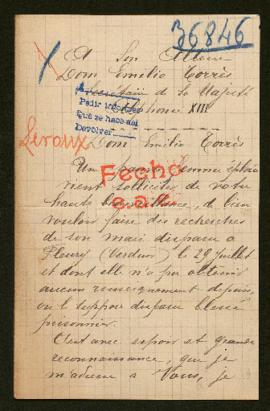 36846
A Son Altesse
Dom Emilio Torrès
Secrétaire de Sa Majesté
Alphonse XIII
Pedir
que se haga
Devolver
Leraux
Dom Emilio Torrès
Une pauvre femme
vient solliciter de votre
haute bienveillance, de bien
vouloir faire des recherches
de son mari disparu à
Fleury (Verdun) le 29 juillet
et dont elle n'a pu obtenir
aucun renseignement depuis,
on le suppose disparu blessé
prisonnier.
C'est avec espoir et grande
reconnaissance, que je
m'adresse à Vous, je
Fecho